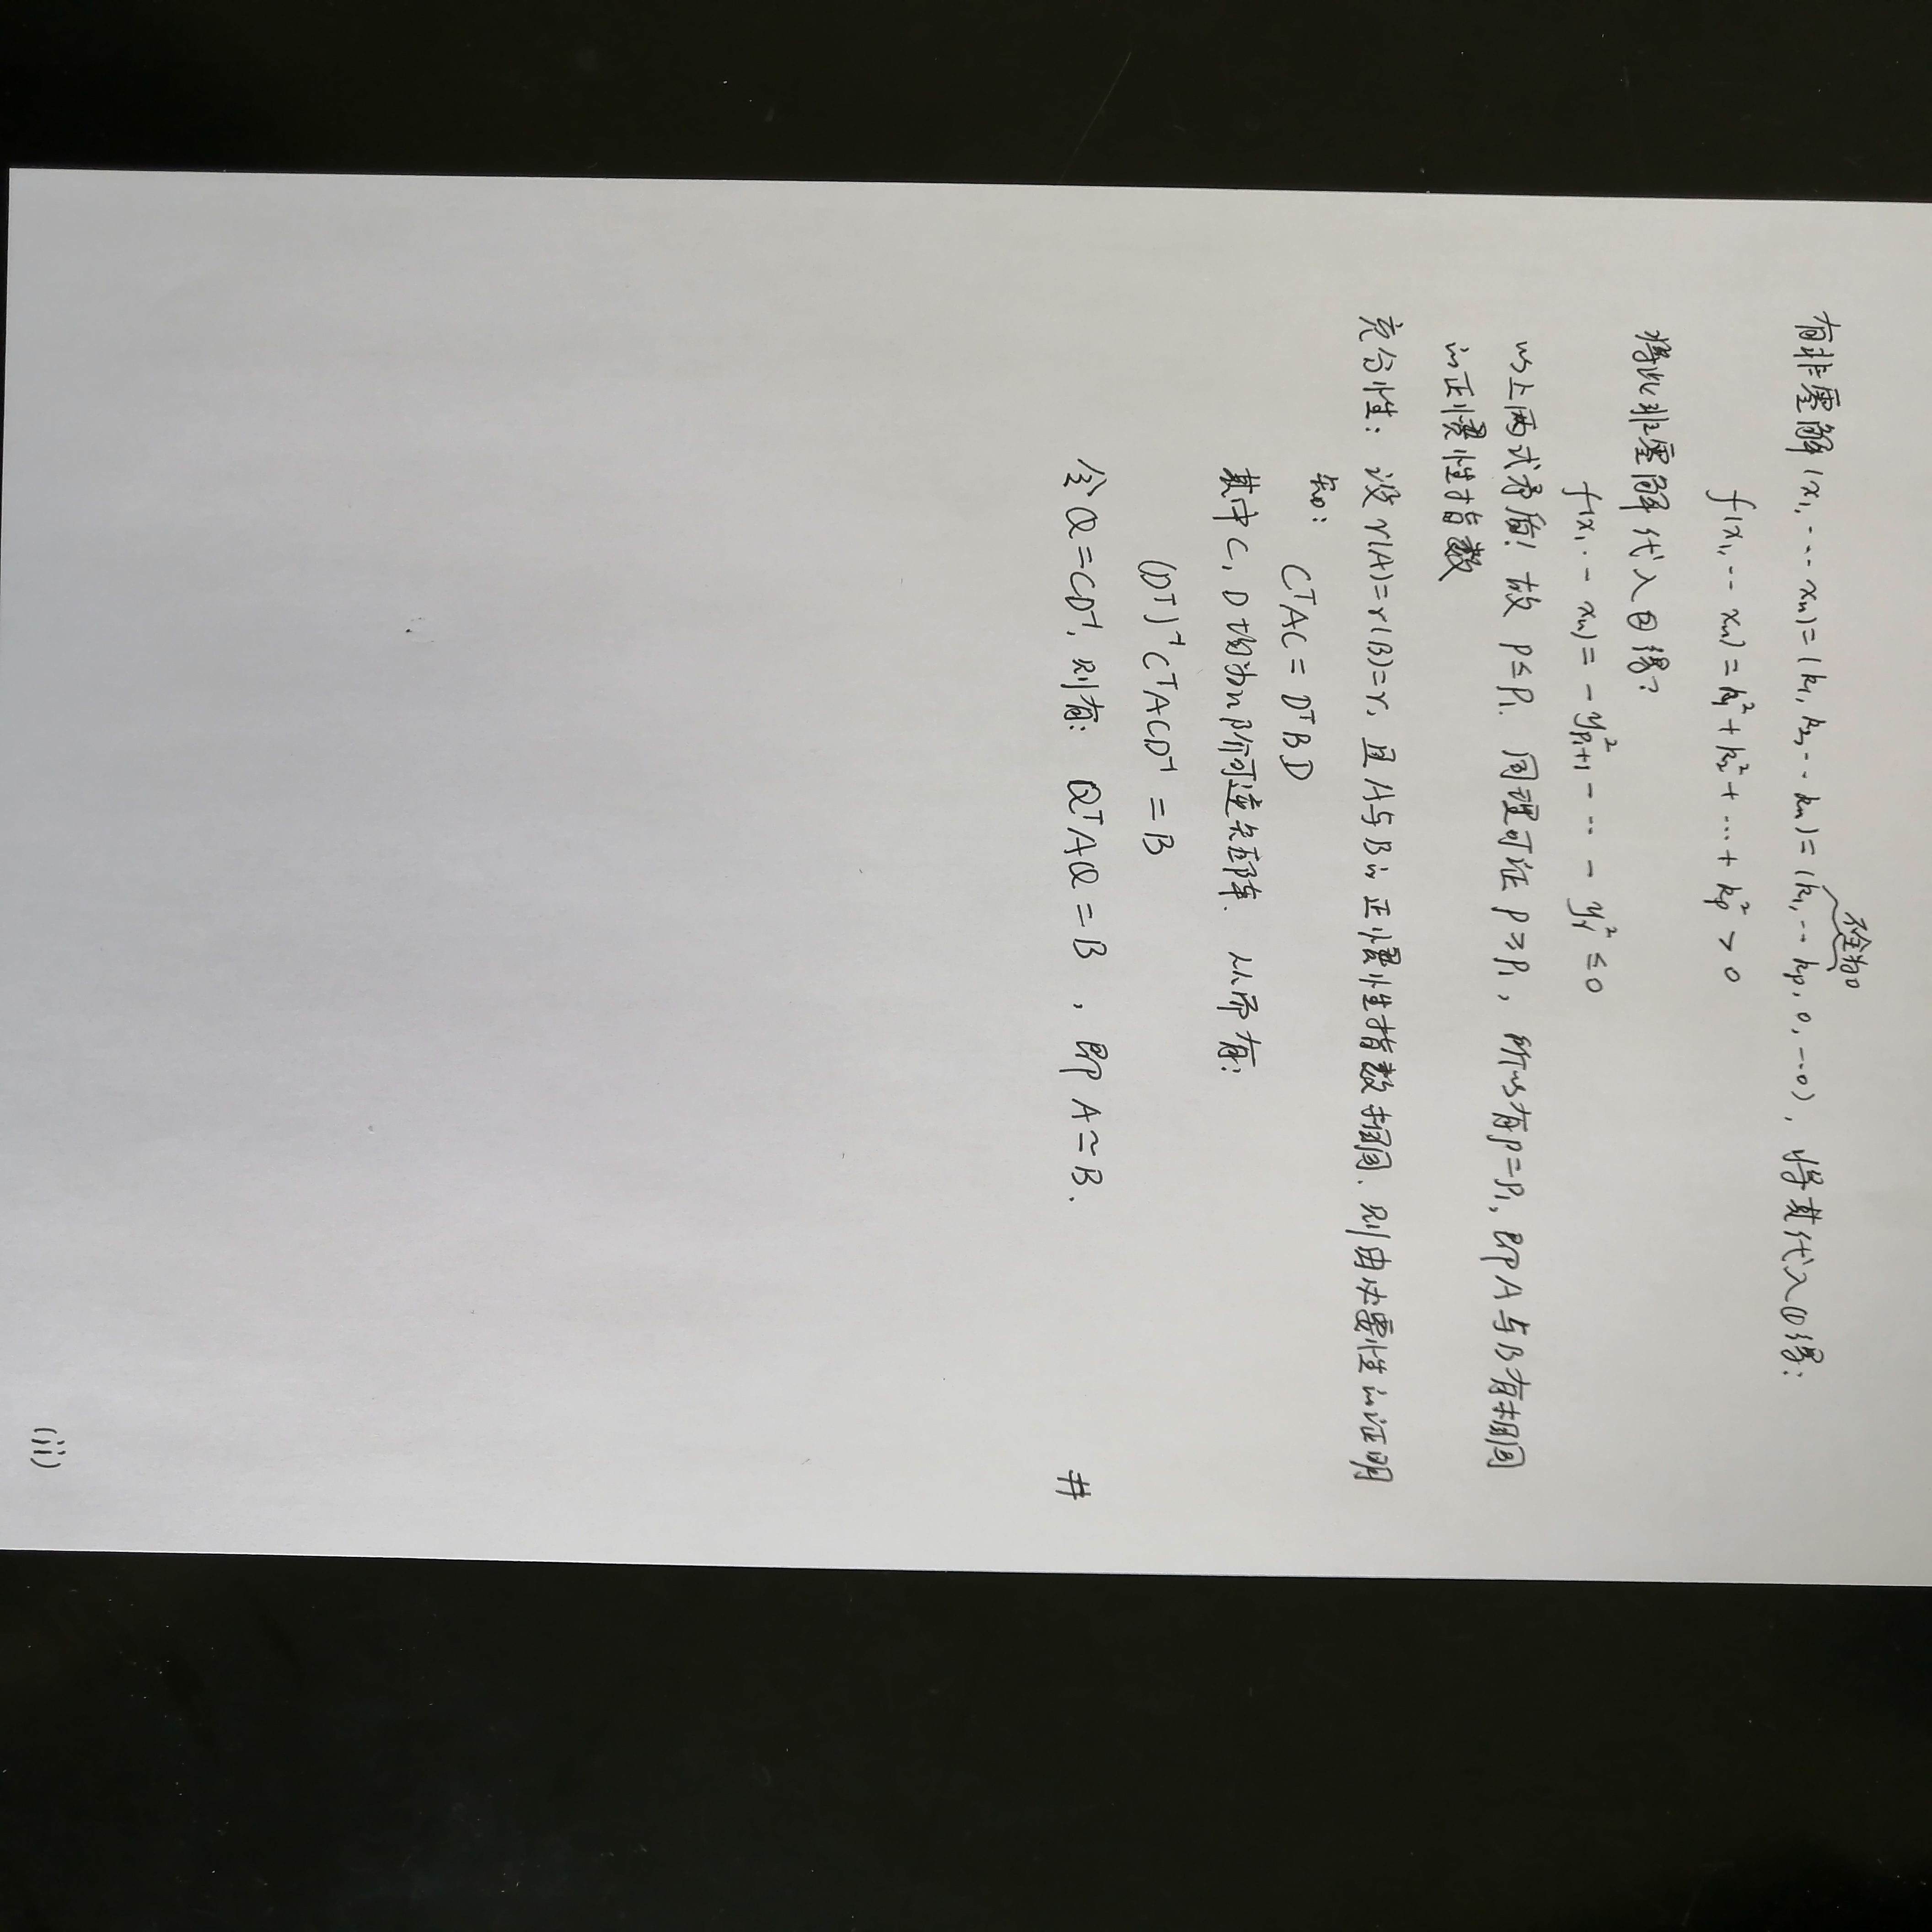 不全为0
有非零解(x₁, ··· xₙ)=(k₁, k₂, ·· kₙ)=(k₁, ·· kₚ, 0, ··0), 将其代入①得:
f(x₁, ·· xₙ) = k₁² + k₂² + ··· + kₚ² > 0
将此非零解代入②得?
f(x₁ ·· xₙ) = - y²ₚ₁₊₁ - ·· - yᵣ² ≤ 0
以上两式矛盾! 故 p≤p₁. 同理可证 p≥p₁, 所以有p=p₁, 即A与B有相同
的正惯性指数
充分性: 设 r(A)=r(B)=r, 且A与B的正惯性指数相同. 则由必要性的证明
知: CᵀAC = DᵀBD
其中C, D均为n阶可逆矩阵. 从而有:
(Dᵀ)⁻¹CᵀACD⁻¹ = B
令Q=CD⁻¹, 则有: QᵀAQ = B , 即 A≃B.
#
(ii)